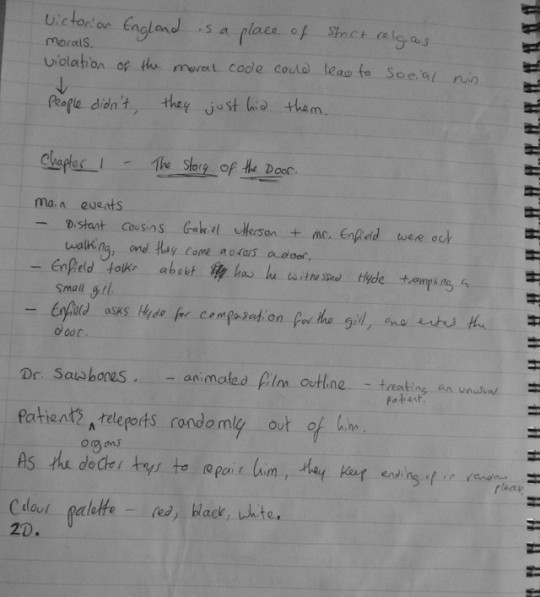 Victorian England is a place of strict religas
morals.
violation of the moral code could lead to social ruin
↓
People didn't, they just hid them.
Chapter 1 - The Story of the Door.
main events
- Distant cousins Gabriel Utterson + mr. Enfield were out
walking, and they come across a door.
- Enfield talks about how he witnessed Hyde trampling a
small girl.
- Enfield asks Hyde for compensation for the girl, and enters the
door.
Dr. Sawbones. - animated film outline - treating an unusual
patient.
Patient's ^ teleports randomly out of him.
organs
As the doctor trys to repair him, they keep ending up in random
places
Colour palette - red, black, white.
2D.